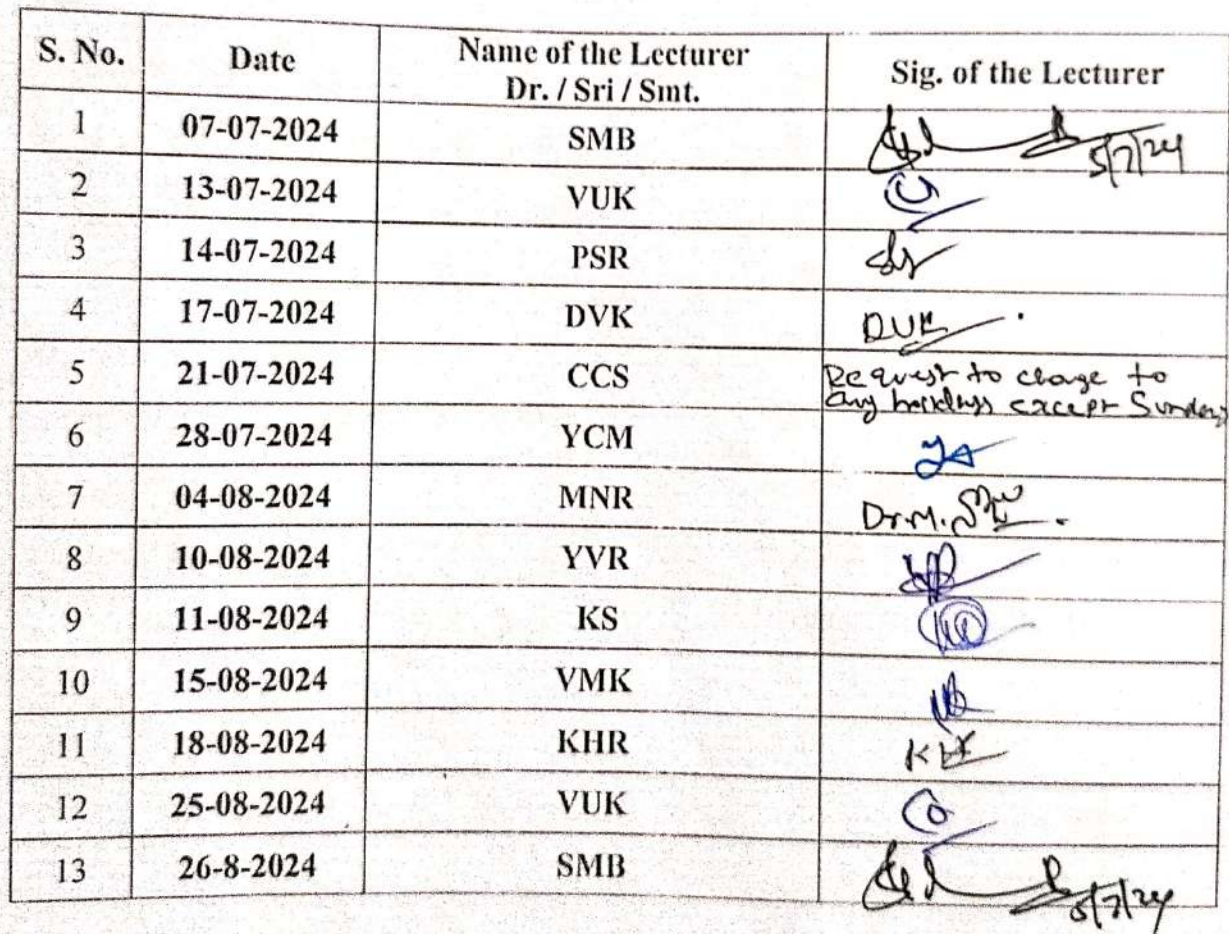 S. No. Date Name of the Lecturer Dr. / Sri / Smt. Sig. of the Lecturer
1 07-07-2024 SMB 5/7/24
2 13-07-2024 VUK
3 14-07-2024 PSR
4 17-07-2024 DVK DVK
5 21-07-2024 CCS Request to change to
any holidays except Sunday
6 28-07-2024 YCM
7 04-08-2024 MNR Dr.M.
8 10-08-2024 YVR
9 11-08-2024 KS
10 15-08-2024 VMK
11 18-08-2024 KHR
12 25-08-2024 VUK
13 26-8-2024 SMB 5/7/24